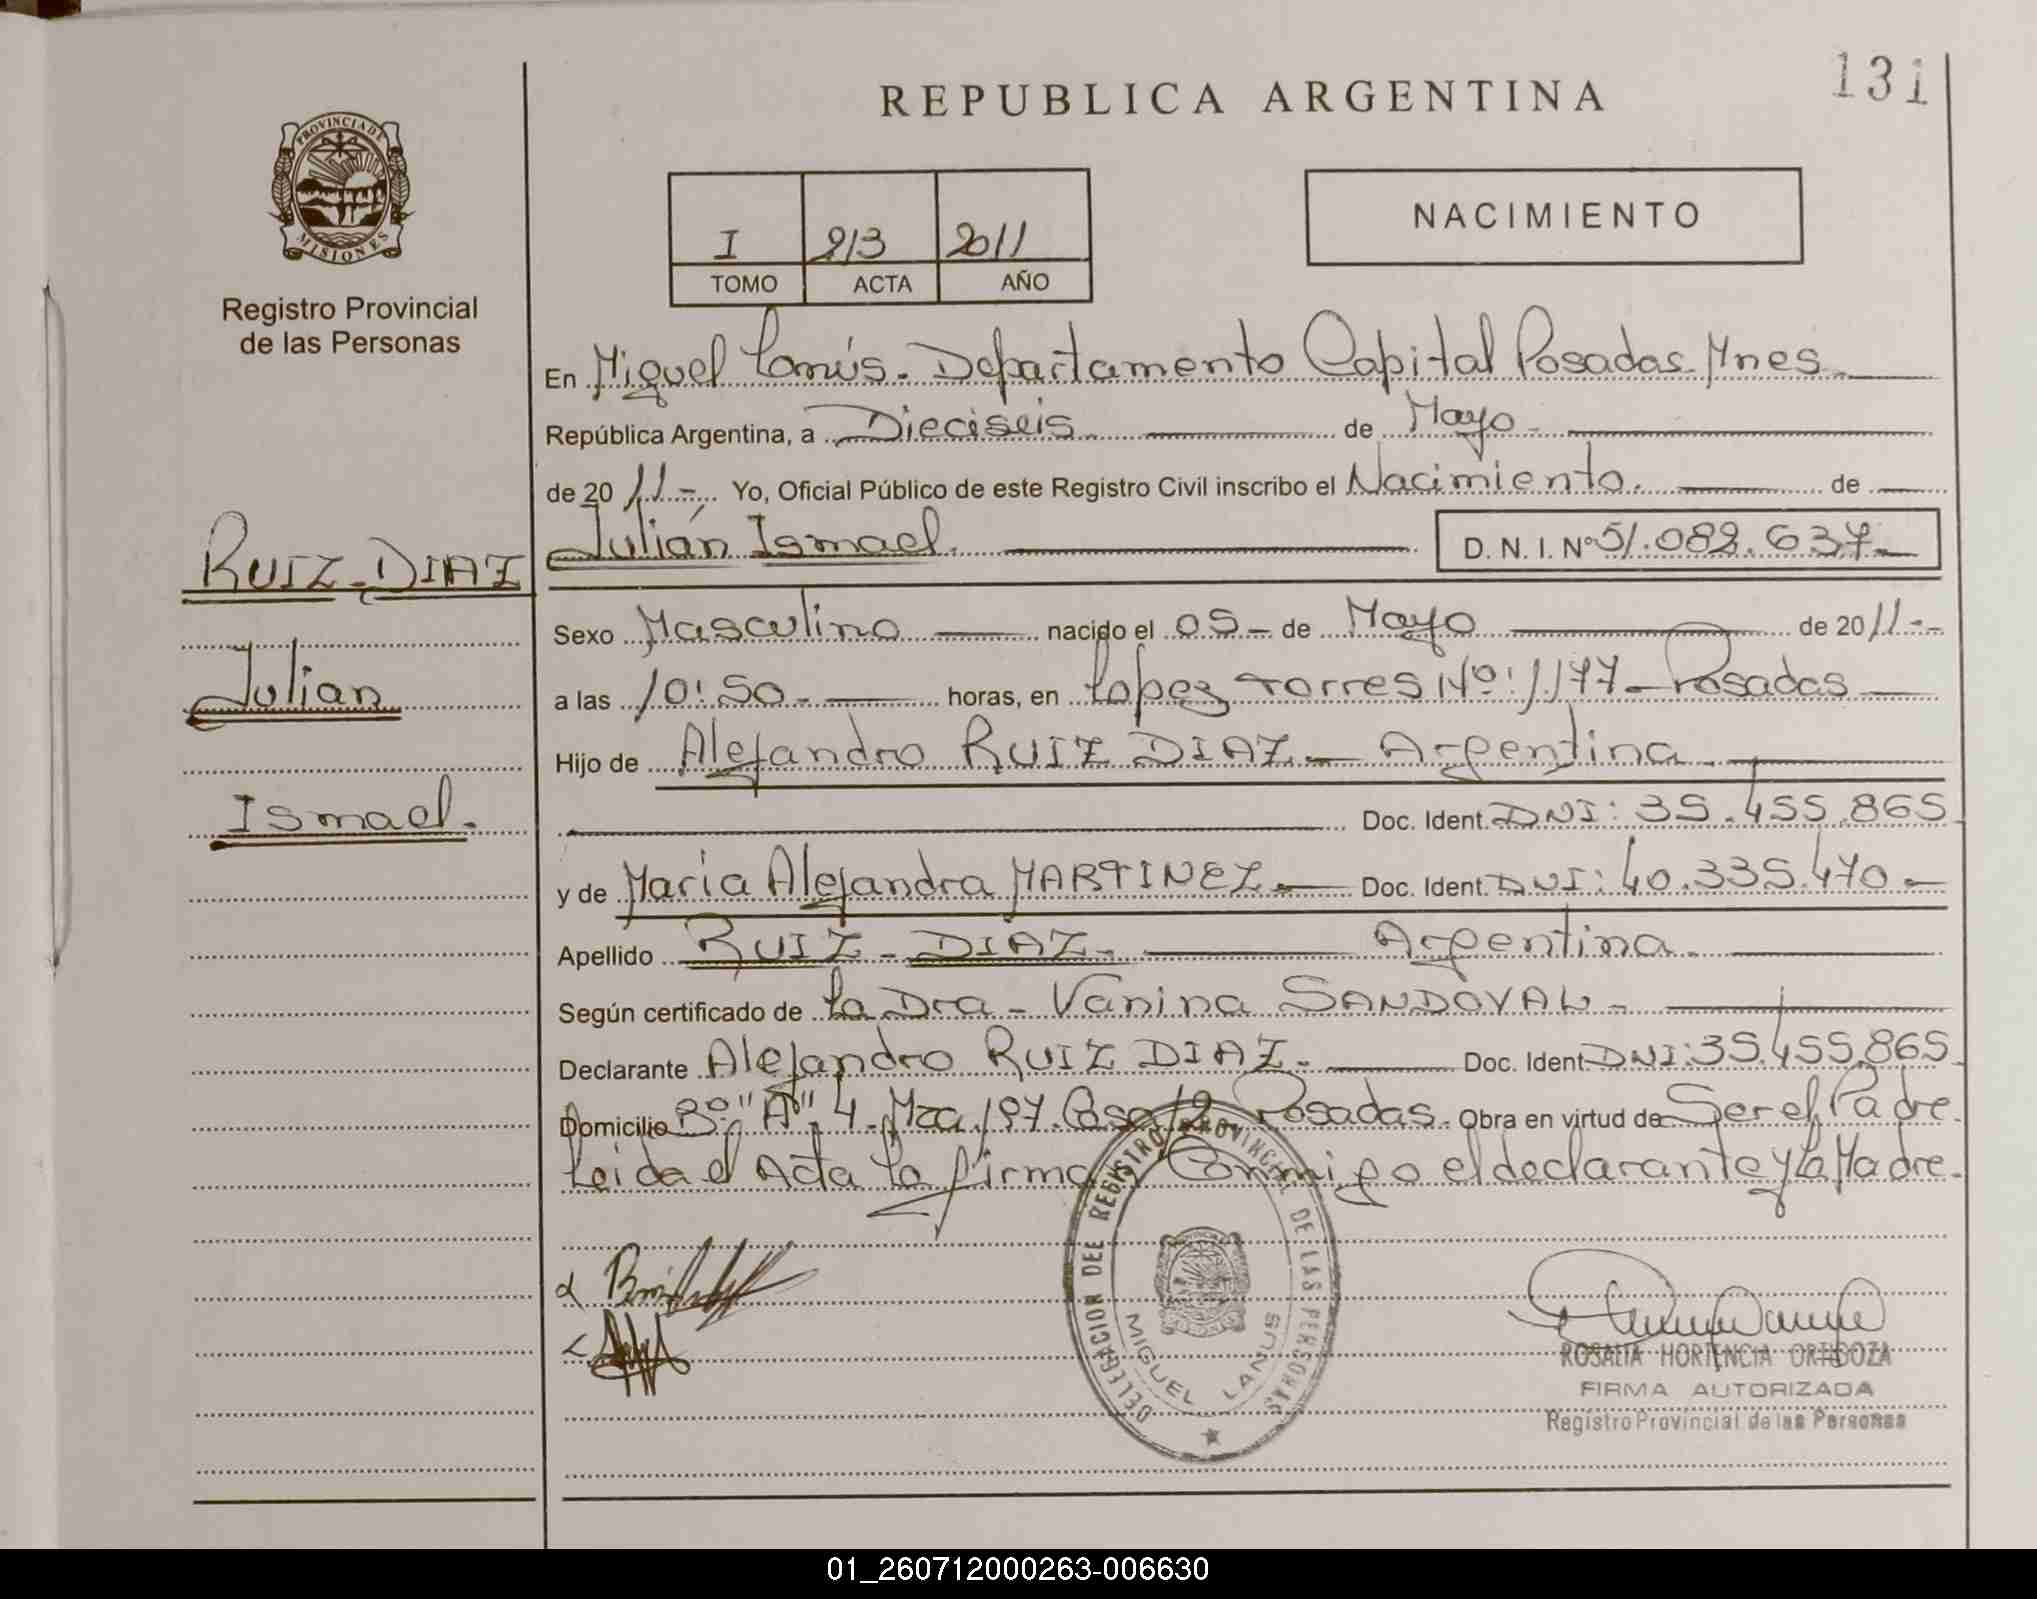 REPUBLICA ARGENTINA
131
PROVINCIA DE
MISIONES
Registro Provincial
de las Personas
I 213 2011
TOMO ACTA AÑO
NACIMIENTO
En Miguel Lanús. Departamento Capital Posadas. Mnes
República Argentina, a Dieciseis de Mayo
de 2011.- Yo, Oficial Público de este Registro Civil inscribo el Nacimiento. de
Julián Ismael. D. N. I. Nº 51.082.637
RUIZ-DIAZ
Julian
Ismael.
Sexo Masculino nacido el 05 - de Mayo de 2011.-
a las 10:50 - horas, en Lopez Torres Nº: 1177 - Posadas
Hijo de Alejandro RUIZ DIAZ - Argentina
Doc. Ident. DNI: 35.455.865
y de María Alejandra MARTINEZ Doc. Ident. DNI: 40.335.470 -
Apellido RUIZ - DIAZ - Argentina
Según certificado de La Dra - Vanina SANDOVAL -
Declarante Alejandro RUIZ DIAZ - Doc. Ident. DNI: 35.455.865
Domicilio Bº "A" 4 Mza 197. Casa 12 Posadas. Obra en virtud de Ser el Padre.
Leida el Acta la firma Conmigo el declarante y la Madre.
DELEGACION DEL REGISTRO PROVINCIAL DE LAS PERSONAS
MIGUEL LANUS
ROSALIA HORTENCIA ORTIGOZA
FIRMA AUTORIZADA
Registro Provincial de las Personas
01_260712000263-006630